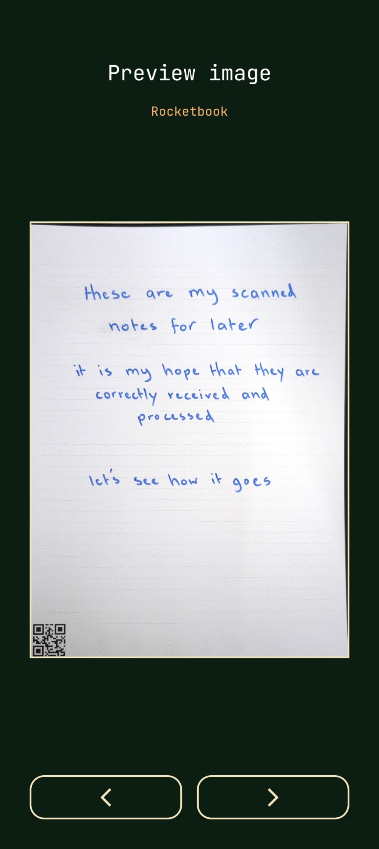 Preview image
Rocketbook
these are my scanned
notes for later
it is my hope that they are
correctly received and
processed
let's see how it goes